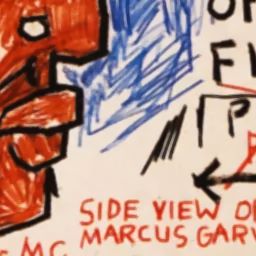 OF
FI
P
SIDE VIEW O
MARCUS GARV
MC